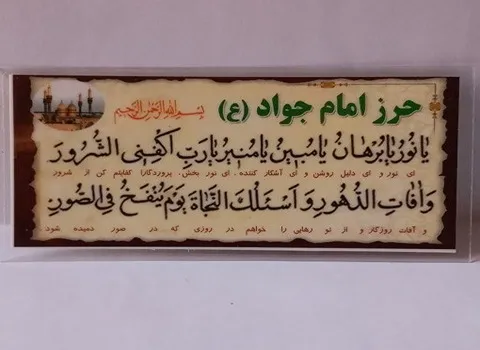 حرز امام جواد (ع)
بسم الله الرحمن الرحیم
یا نُورُ یا بُرْهانُ یا مُبینُ یا مُنیرُ یا رَبِّ اکْفِنی الشُّرُورَ
ای نور و ای دلیل روشن و ای آشکار کننده، ای نور بخش، پروردگارا کفایتم کن از شرور
وَ افاتِ الدُّهُورِ وَ اَسْئَلُکَ النَّجاةَ یَوْمَ یُنْفَخُ فِی الصُّورِ
و آفات روزگار و از تو رهایی را خواهم در روزی که در صور دمیده شود